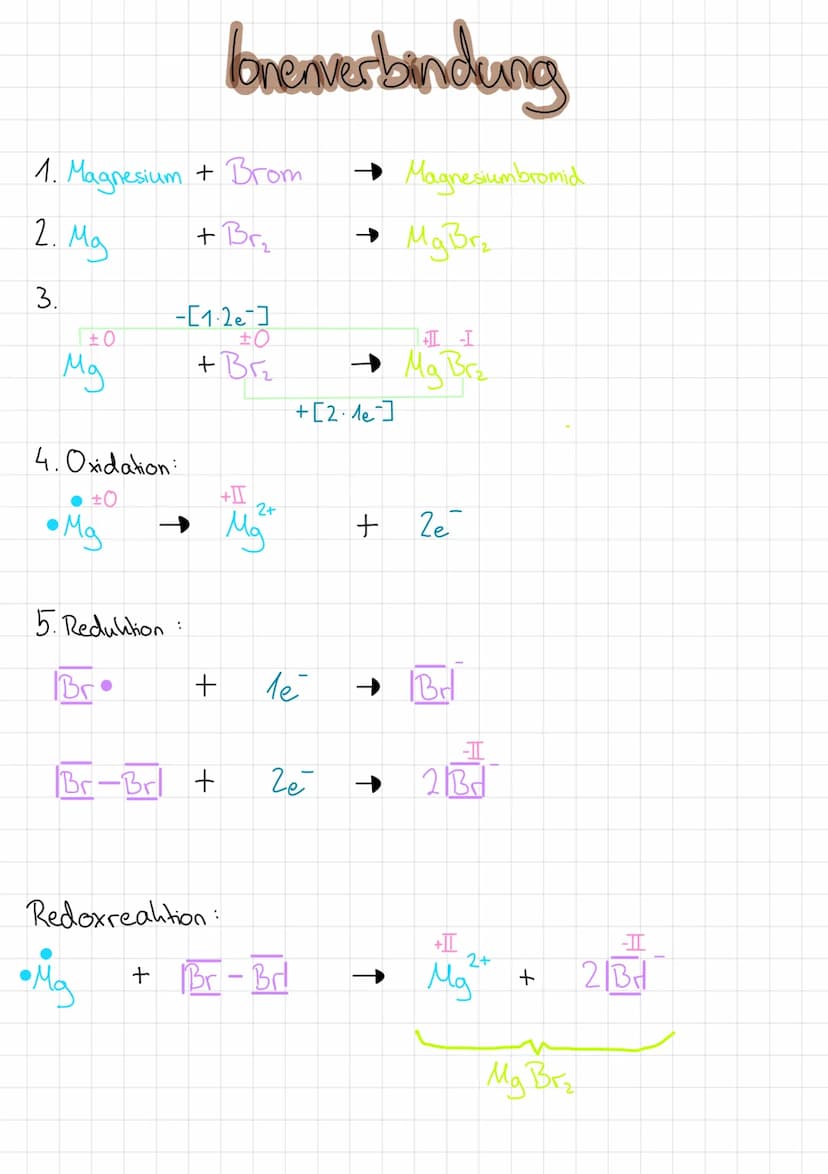 Ionenverbindung
1. Magnesium + Brom → Magnesiumbromid
2. Mg + Br₂ → MgBr₂
3.
-[1·2e⁻]
±0 ±0 +II -I
Mg + Br₂ → MgBr₂
+[2·1e⁻]
4. Oxidation:
±0 +II
•Mg → Mg²⁺ + 2e⁻
5. Reduktion:
|Br• + 1e⁻ → |Br|⁻
-II
|Br–Br| + 2e⁻ → 2|Br|⁻
Redoxreaktion:
+II -II
•Mg + |Br–Br| → Mg²⁺ + 2|Br|⁻
MgBr₂